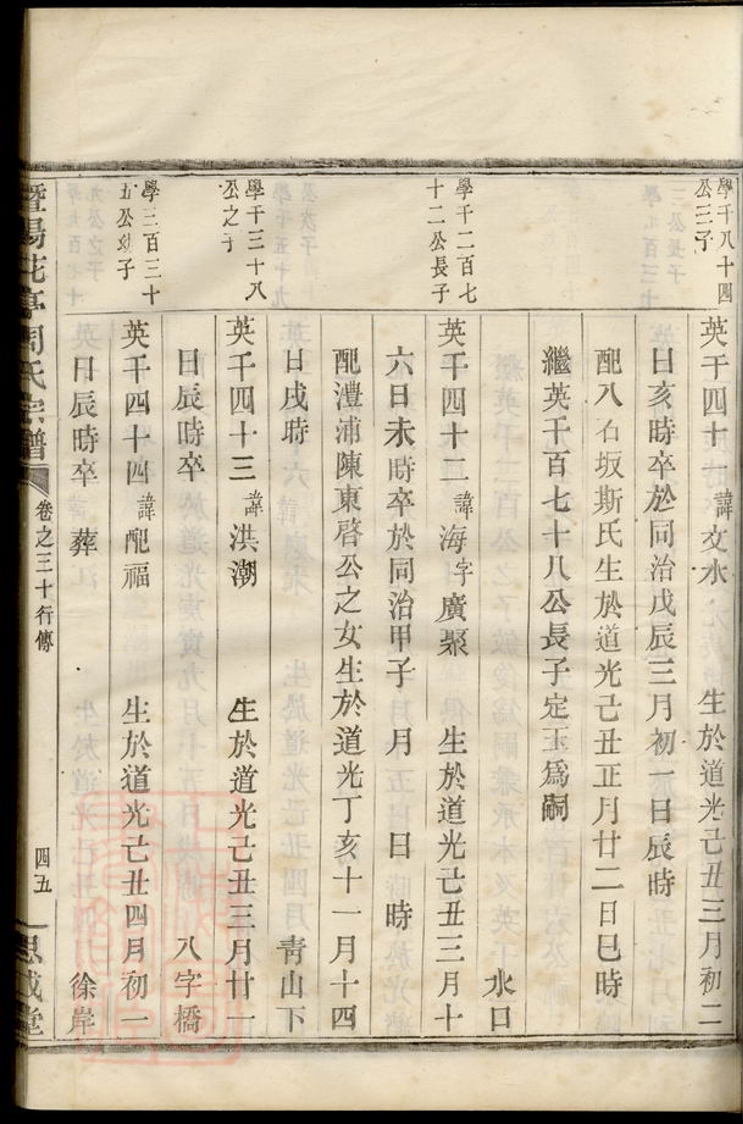 學千八十四
公三子
英千四十一諱文水 生於道光己丑三月初二
日亥時卒於同治戊辰三月初一日辰時
配八石坂斯氏生於道光己丑正月廿二日巳時
繼英千百七十八公長子定玉爲嗣
水口
學千二百七
十二公長子
英千四十二諱海字廣聚 生於道光己丑三月十
六日未時卒於同治甲子 月 日 時
配澧浦陳東啓公之女生於道光丁亥十一月十四
日戌時 青山下
學千三十八
公之子
英千四十三諱洪潮 生於道光己丑三月廿一
日辰時卒 八字橋
學三百三十
五公幼子
英千四十四諱配福 生於道光己丑四月初一
日辰時卒 葬 徐岸
暨陽花亭周氏宗譜 卷之三十行傳 四五 思成堂